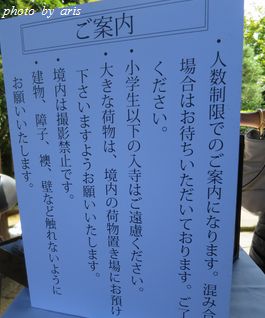 photo by aris
ご案内
・人数制限でのご案内になります。混み合
場合はお待ちいただいております。ご了
ください。
・小学生以下の入寺はご遠慮ください。
・大きな荷物は、境内の荷物置き場にお預け
下さいますようお願いいたします。
・境内は撮影禁止です。
・建物、障子、襖、壁など触れないように
お願いいたします。